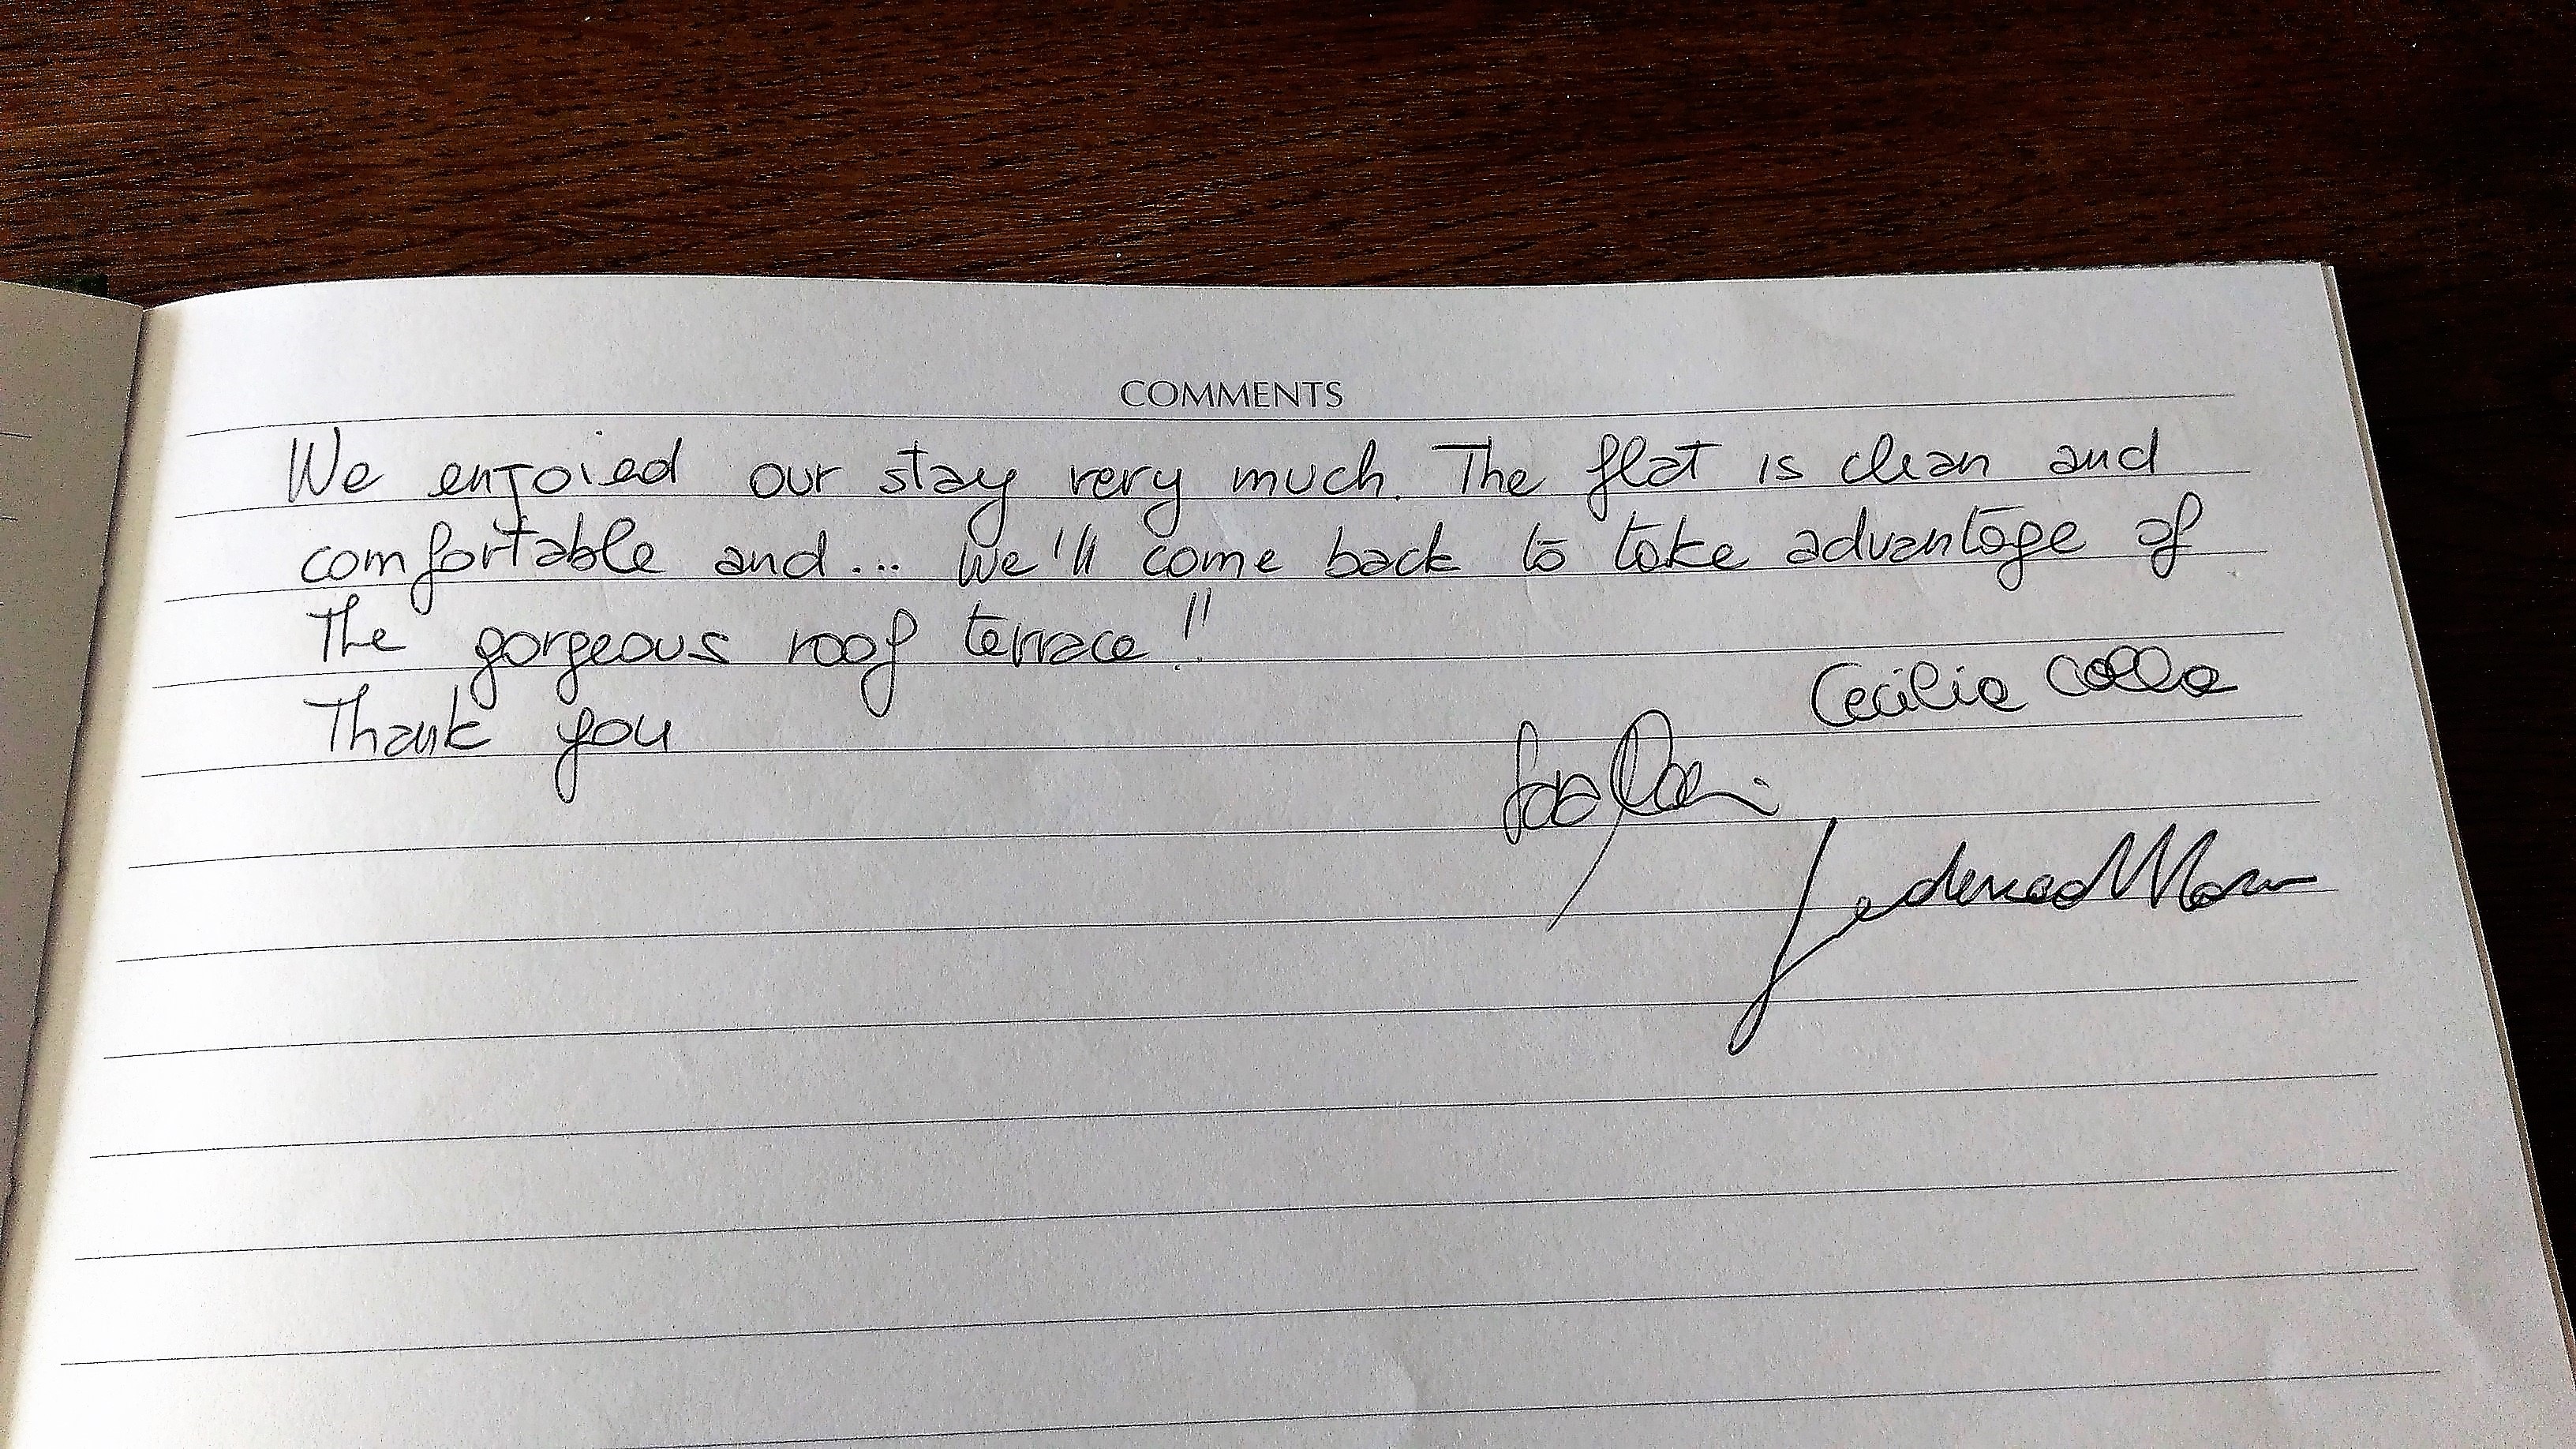 COMMENTS
We enjoied our stay very much. The flat is clean and
comfortable and... We'll come back to take advantage of
The gorgeous roof terrace!!
Thank you
Cecilia Colla